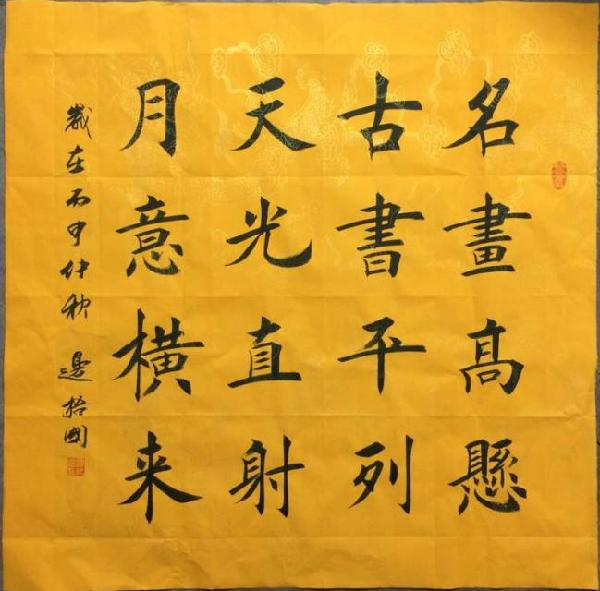 名畫高懸
古書平列
天光直射
月意橫来
歲在丙申仲秋 邊